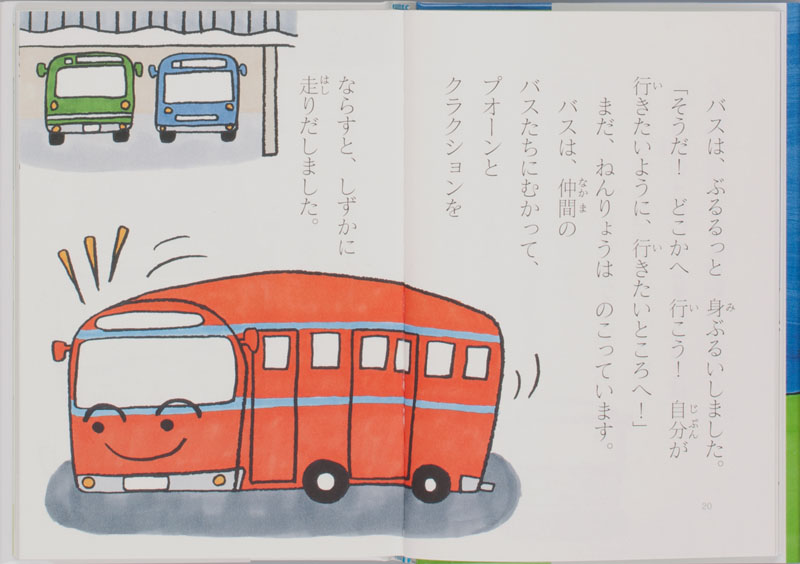 バスは、ぶるるっと　身ぶるいしました。
「そうだ！　どこかへ　行こう！　自分が
行きたいように、行きたいところへ！」
まだ、ねんりょうは　のこっています。
バスは、仲間の
バスたちにむかって、
プオーンと
クラクションを
ならすと、しずかに
走りだしました。
20